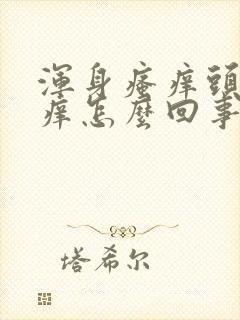 渾身瘙痒頭
痒怎麽回事
塔希尔